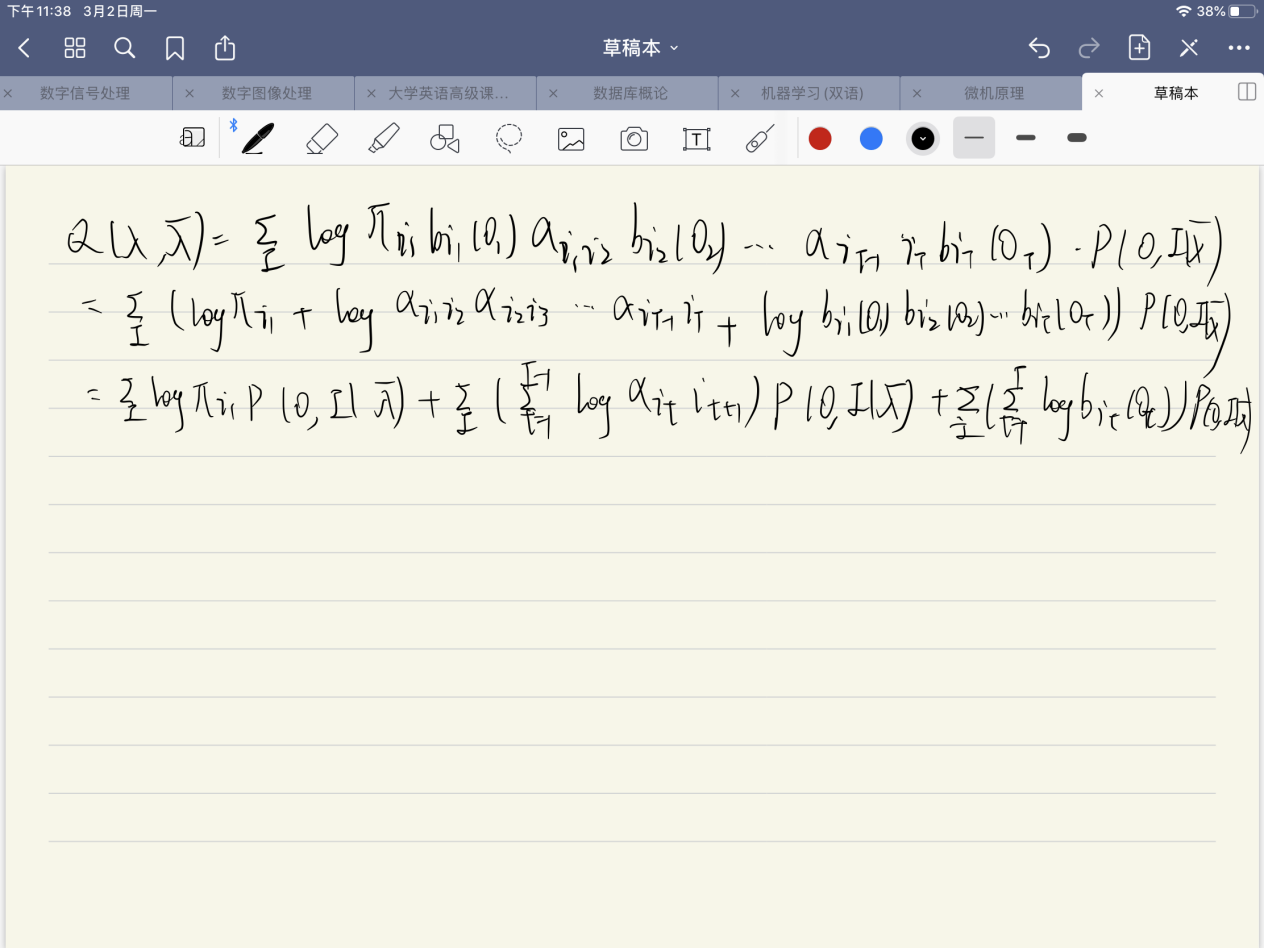 下午11:38 3月2日周一 38%
草稿本
数字信号处理 数字图像处理 大学英语高级课... 数据库概论 机器学习(双语) 微机原理 草稿本
Q(λ,λ̄) = Σ_I log π_{i₁} b_{i₁}(O₁) a_{i₁i₂} b_{i₂}(O₂) ... a_{i_{T-1} i_T} b_{i_T}(O_T) · P(O,I|λ̄)
= Σ_I (log π_{i₁} + log a_{i₁i₂} a_{i₂i₃} ... a_{i_{T-1} i_T} + log b_{i₁}(O₁) b_{i₂}(O₂) ... b_{i_T}(O_T)) P(O,I|λ̄)
= Σ_I log π_{i₁} P(O,I|λ̄) + Σ_I (Σ_{t=1}^{T-1} log a_{i_t i_{t+1}}) P(O,I|λ̄) + Σ_I (Σ_{t=1}^{T} log b_{i_t}(O_t)) P(O,I|λ̄)